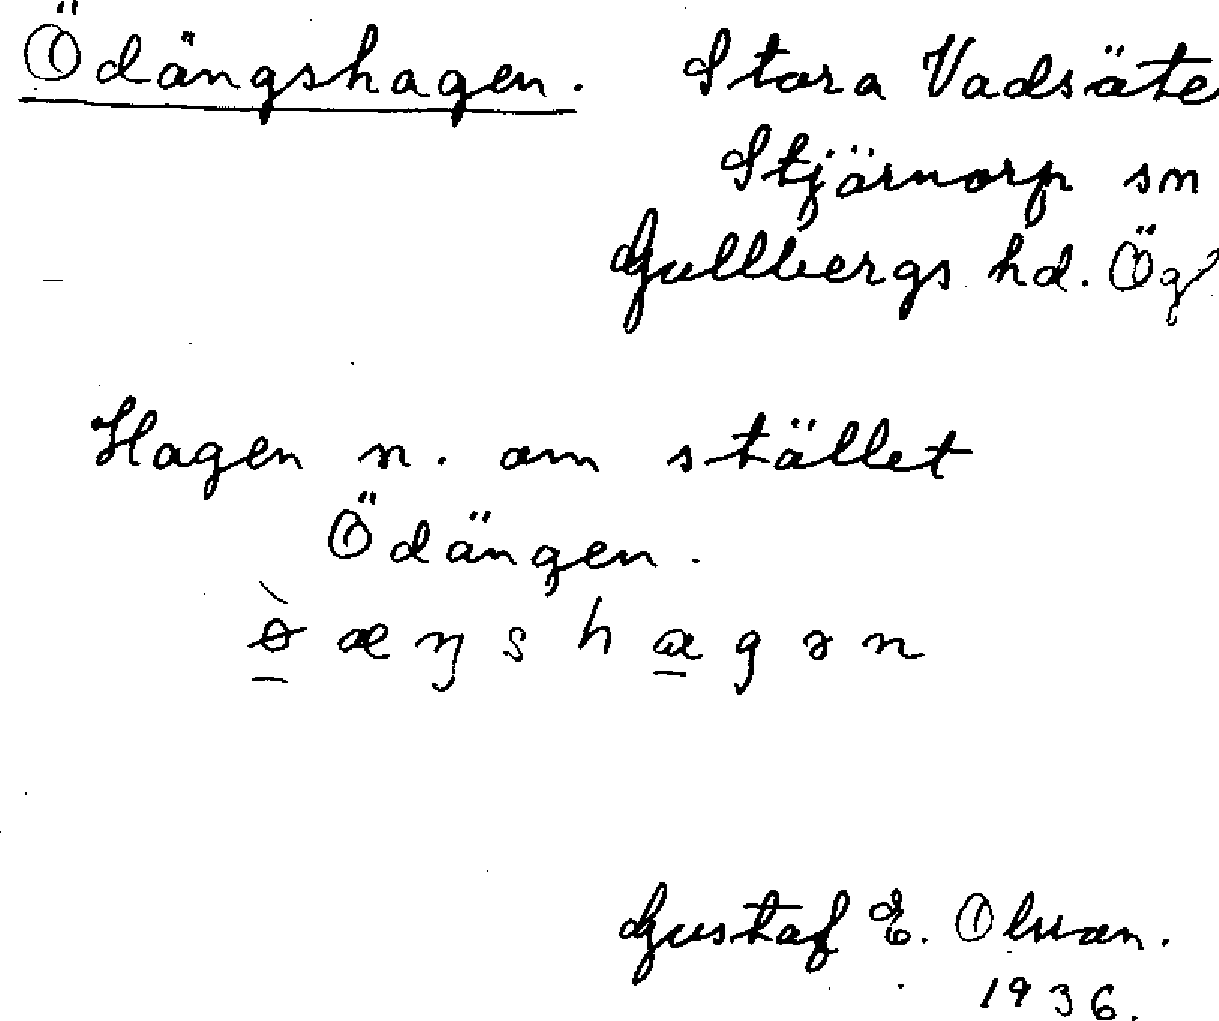 Ödängshagen. Stora Vadsäte
Stjärnorp sn
Gullbergs hd. Ög
Hagen n. om stället
Ödängen.
ɵ̀æŋshagən
Gustaf E. Olsson.
1936.